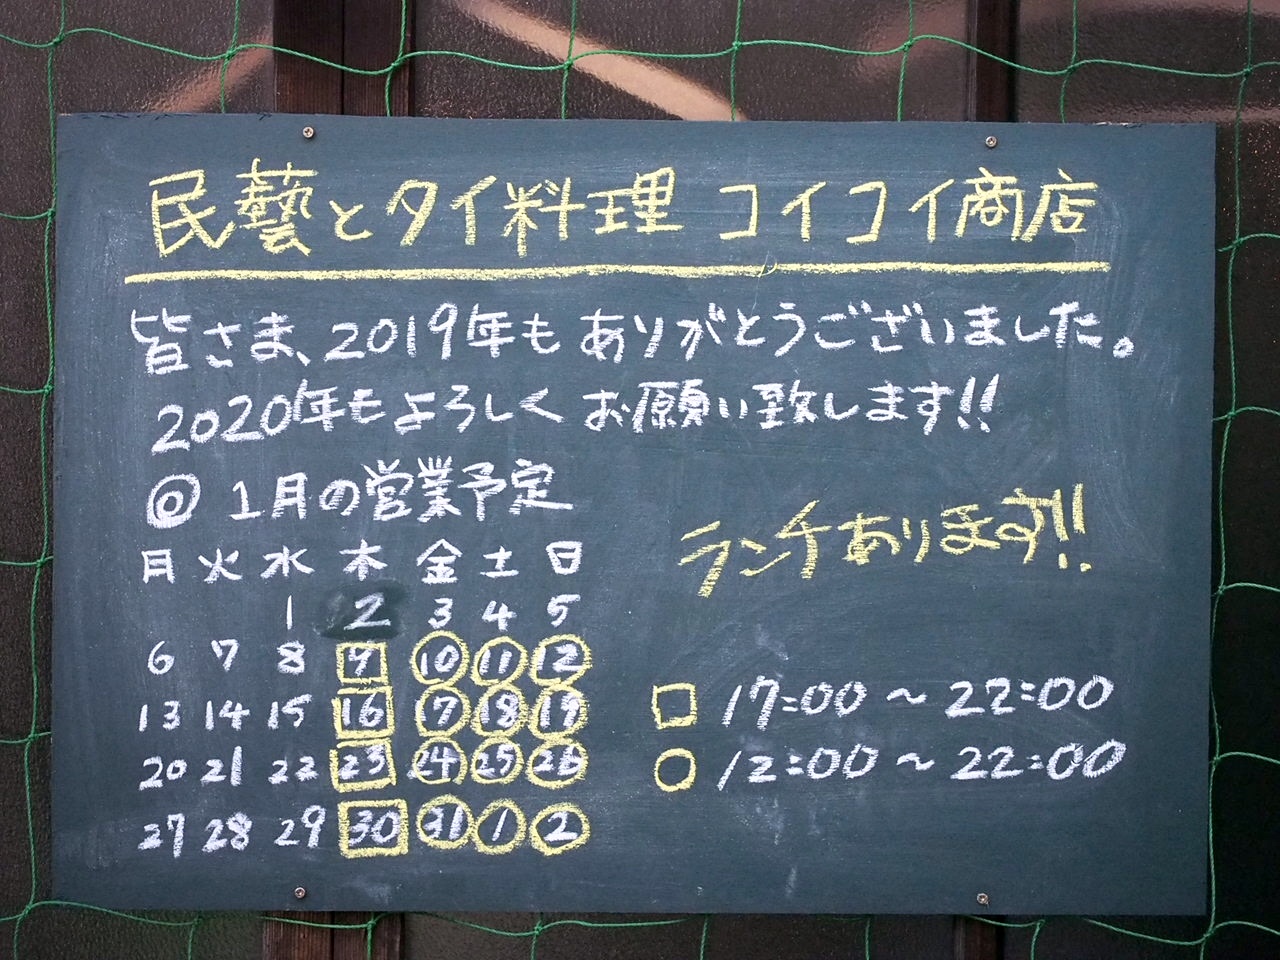 民藝とタイ料理 コイコイ商店
皆さま、2019年もありがとうございました。
2020年もよろしくお願い致します!!
◎ 1月の営業予定
ランチあります!!
月 火 水 木 金 土 日
1 2 3 4 5
6 7 8 9 10 11 12
13 14 15 16 17 18 19
20 21 22 23 24 25 26
27 28 29 30 31 1 2
□ 17:00 〜 22:00
○ 12:00 〜 22:00